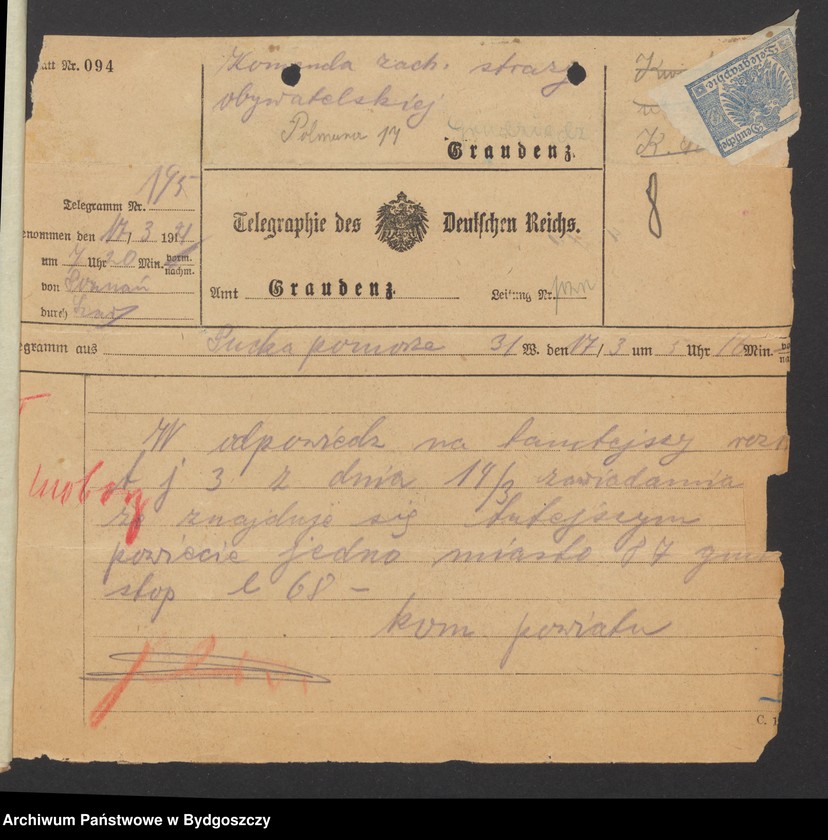 att Nr. 094
Komenda zach. straży
obywatelskiej
Graudenz.
8
Telegramm Nr. 195
enommen den 17/3 1921
um 7 Uhr 20 Min. vorm. nachm.
von Poznań
durch
Telegraphie des Deutschen Reichs.
Amt Graudenz.
Leitung Nr.
Telegraphie
Deutsche
egramm aus pomorze 31 W. den 17/3 um 5 Uhr Min.
W odpowiedz na tamtejszy
t j 3 z dnia 14/3 zawiadamia
że znajduje się tutejszym
powiecie jedno miasto 87
stop l 68 –
kom powiatu
C. 1
Archiwum Państwowe w Bydgoszczy